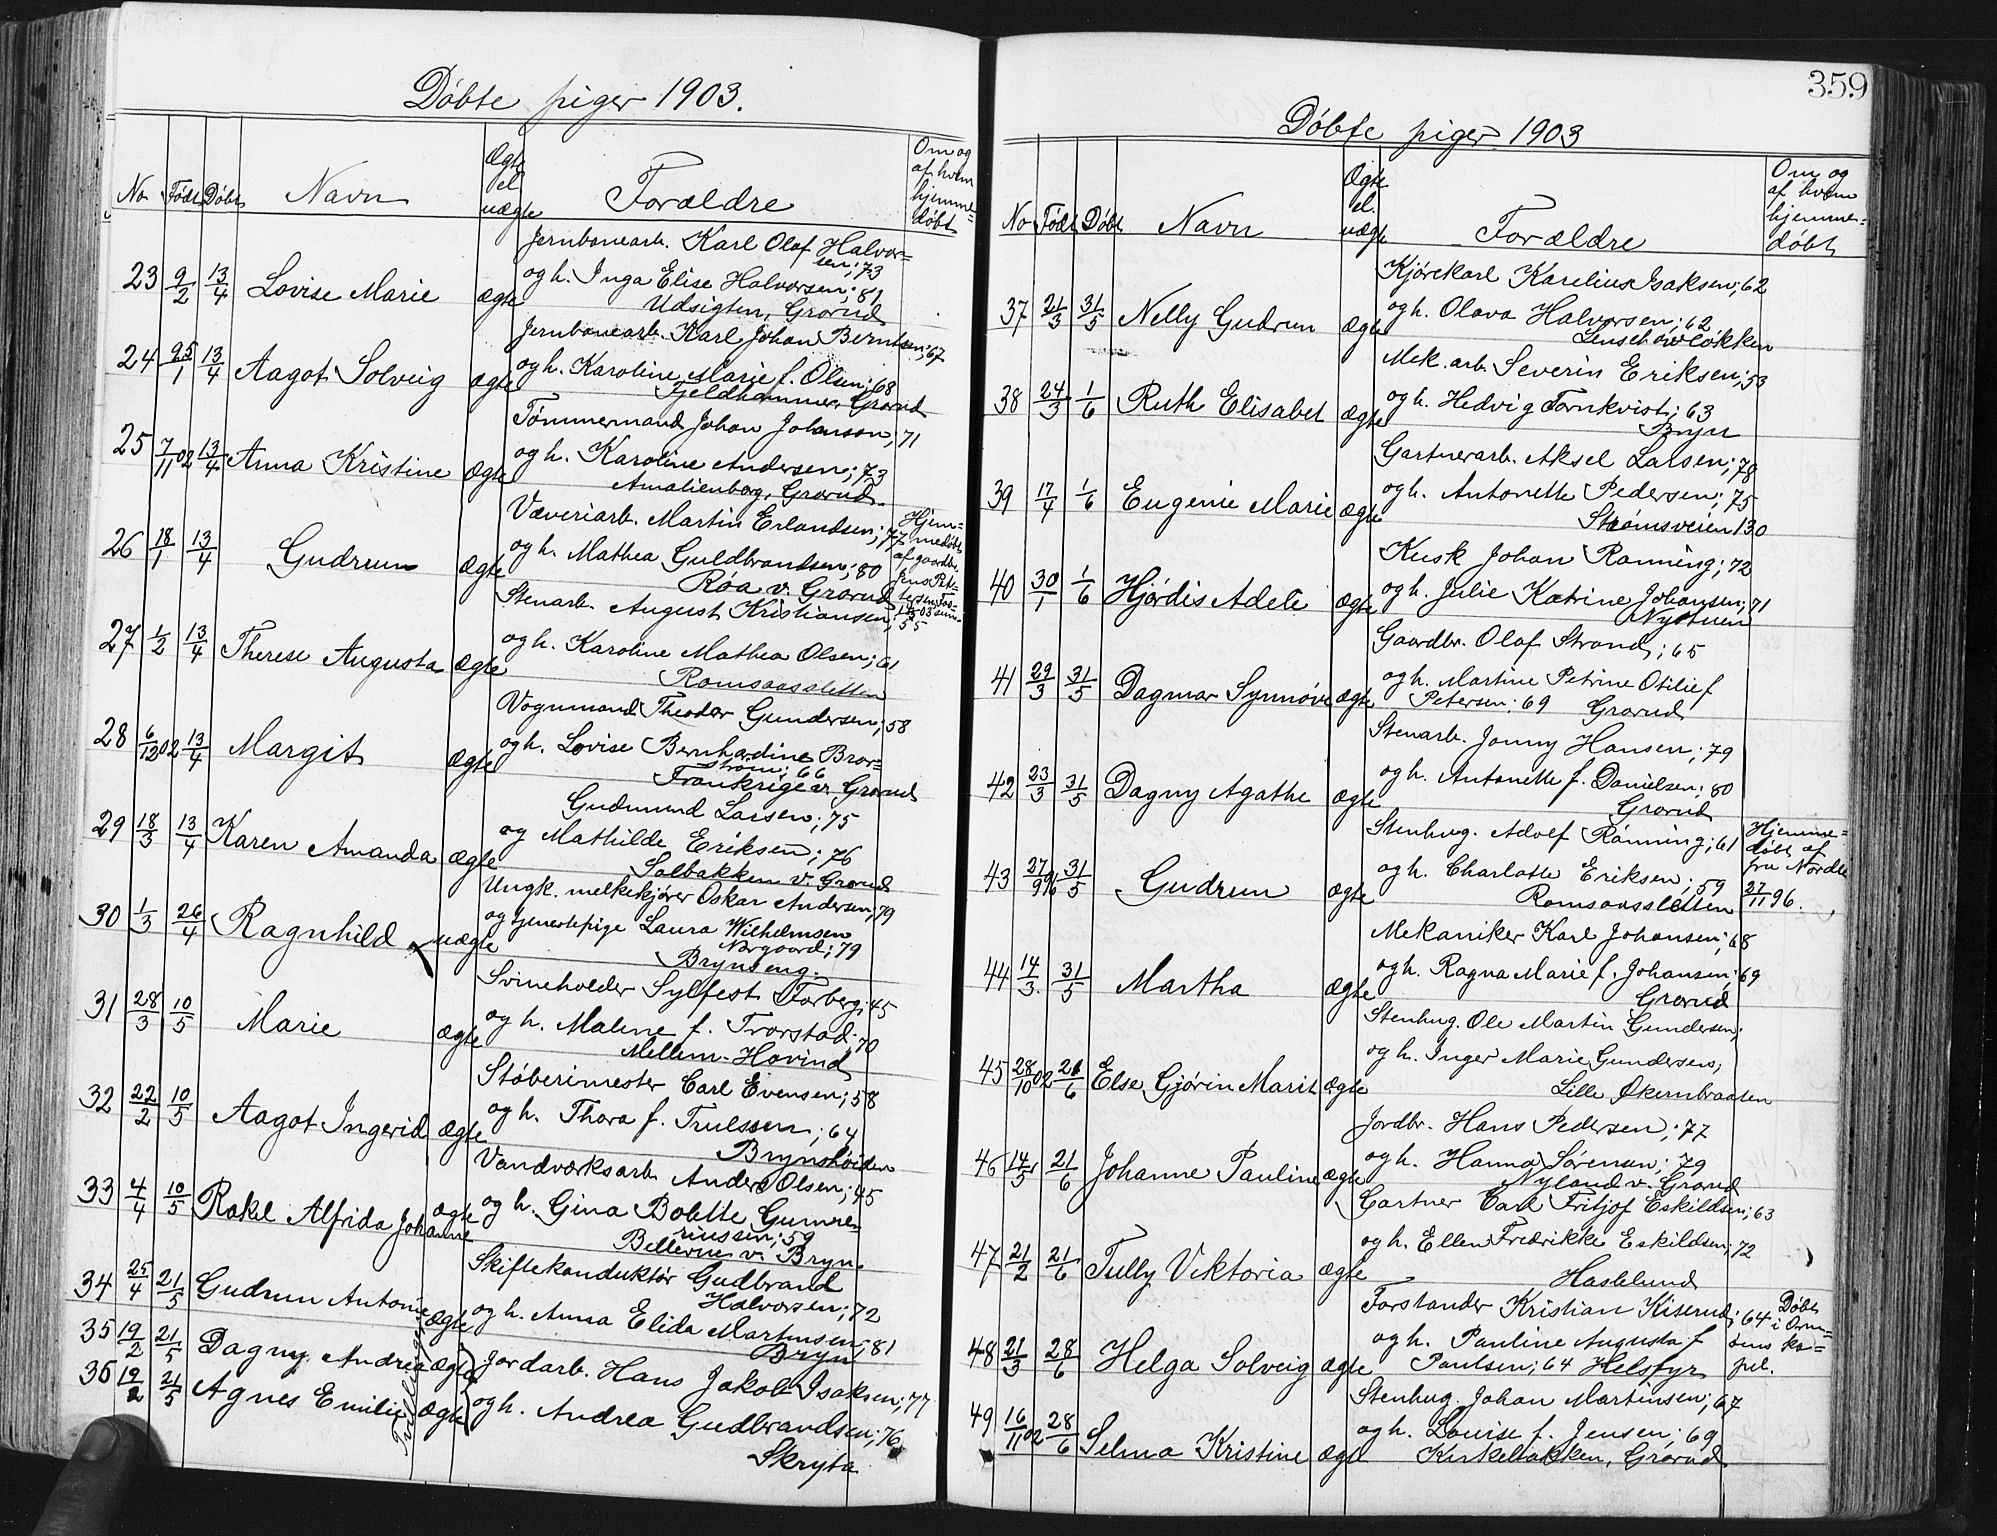 Döbte piger 1903.
No Födt Döbt Navn Ægte el uægte Forældre Om og af hvem hjemme=döbt
23 9/2 13/4 Lovise Marie ægte Jernbanearb. Karl Olaf Halvor=
sen; 73
og h. Inga Elise Halvorsen; 81
Udsigten, Grorud
24 25/1 13/4 Aagot Solveig ægte Jernbanearb. Karl Johan Berntsen; 67
og h. Karoline Marie f. Olsen; 68
Fjeldhammer, Grorud
25 7/11 02 13/4 Anna Kristine ægte Tømmermand Johan Johanson; 71
og h. Karoline Andersen; 73
Amalienborg, Grorud
26 18/1 13/4 Gudrun ægte Væveriarb. Martin Erlandsen; 77
og h. Mathea Guldbrandsen; 80
Røa v. Grorud
Hjem=
medöbt
af gaardbr.
Jens Pet=
tersen
27 1/2 13/4 Therese Augusta ægte Stenarb. August Kristiansen; 55
og h. Karoline Mathea Olsen; 61
Romsaassletten
28 6/12 02 13/4 Margit ægte Vognmand Theodor Gundersen; 58
og h. Lovise Bernhardine Bror=
strøm; 66
Frankrige v. Grorud
29 18/3 13/4 Karen Amanda ægte Gudmund Larsen; 75
og Mathilde Eriksen; 76
Solbakken v. Grorud
30 1/3 26/4 Ragnhild uægte Ungk. melkekjører Oskar Andersen; 79
og tjenestepige Laura Wilhelmsen
Norgaard; 79
Brynseng.
31 28/3 10/5 Marie ægte Svineholder Sylfest Forberg; 45
og h. Malene f. Trorstad; 70
Mellem-Hovind
32 22/2 10/5 Aagot Ingerid ægte Støberimester Carl Evensen; 58
og h. Thora f. Trulssen; 64
Brynshøiden
33 4/4 10/5 Rakel Alfrida Johanne ægte Vandværksarb. Anders Olsen; 45
og h. Gina Bolette Gunne=
riussen; 59
Bellevue v. Bryn
34 25/4 21/5 Gudrun Antonie ægte Skiftekonduktør Gudbrand
Halvorsen; 72
og h. Anna Elida Martinsen; 81
Bryn
35 19/2 21/5 Dagny Andrea ægte Jordarb. Hans Jakob Isaksen; 77
36 19/2 21/5 Agnes Emilie ægte og h. Andrea Gudbrandsen; 76
Tvillinger
Skryta
359
Döbte piger 1903
No Födt Döbt Navn Ægte el. uægte Forældre Om og af hvem hjemme=döbt
37 21/3 31/5 Nelly Gudrun ægte Kjørekarl Karelius Isaksen; 62
og h. Olava Halvorsen; 62
38 24/3 1/6 Ruth Elisabet ægte Mek. arb. Severin Eriksen; 53
og h. Hedvig Tornkvist; 63
Bryn
39 17/4 1/6 Eugenie Marie ægte Gartnerarb. Aksel Larsen; 78
og h. Antonette Pedersen; 75
Strømsveien 130
40 30/1 1/6 Hjördis Adele ægte Kusk Johan Rønning; 72
og h. Julie Katrine Johansen; 71
Nystuen
41 29/3 31/5 Dagmar Synnøve ægte Gaardbr. Olaf Strand; 65
og h. Martine Petrine Otilie f
Petersen; 69 Grorud
42 23/3 31/5 Dagny Agathe ægte Stenarb. Jonny Hansen; 79
og h. Antonette f. Danielsen; 80
Grorud
43 27/9 96 31/5 Gudrun ægte Stenhug. Adolf Rønning; 61
og h. Charlotte Eriksen; 59
Romsaassletten
Hjemme=
döbt af
fru Nordli
27/11 96.
44 14/3 31/5 Martha ægte Mekaniker Karl Johansen; 68
og h. Ragna Marie f. Johansen; 69
Grorud
45 28/10 02 21/6 Else Gjørin Marit ægte Stenhug. Ole Martin Gundersen;
og h. Inger Marie Gundersen;
Lille Økernbraaten
46 14/5 21/6 Johanne Pauline ægte Jordbr. Hans Pedersen; 77
og h. Hanna Sørensen; 79
Nyland v. Grorud
47 21/2 21/6 Tully Viktoria ægte Gartner Carl Fritjof Eskildsen; 63
og h. Ellen Fredrikke Eskildsen; 72
Haslelund
48 21/3 28/6 Helga Solveig ægte Forstander Kristian Kiserud; 64
og h. Pauline Augusta f
Paulsen; 64 Helsfyr
Döbt
i Orm=
sens ka=
pel.
49 16/11 02 28/6 Selma Kristine ægte Stenhug. Johan Martinsen; 67
og h. Louise f. Jensen; 69
Kirkebakken, Grorud